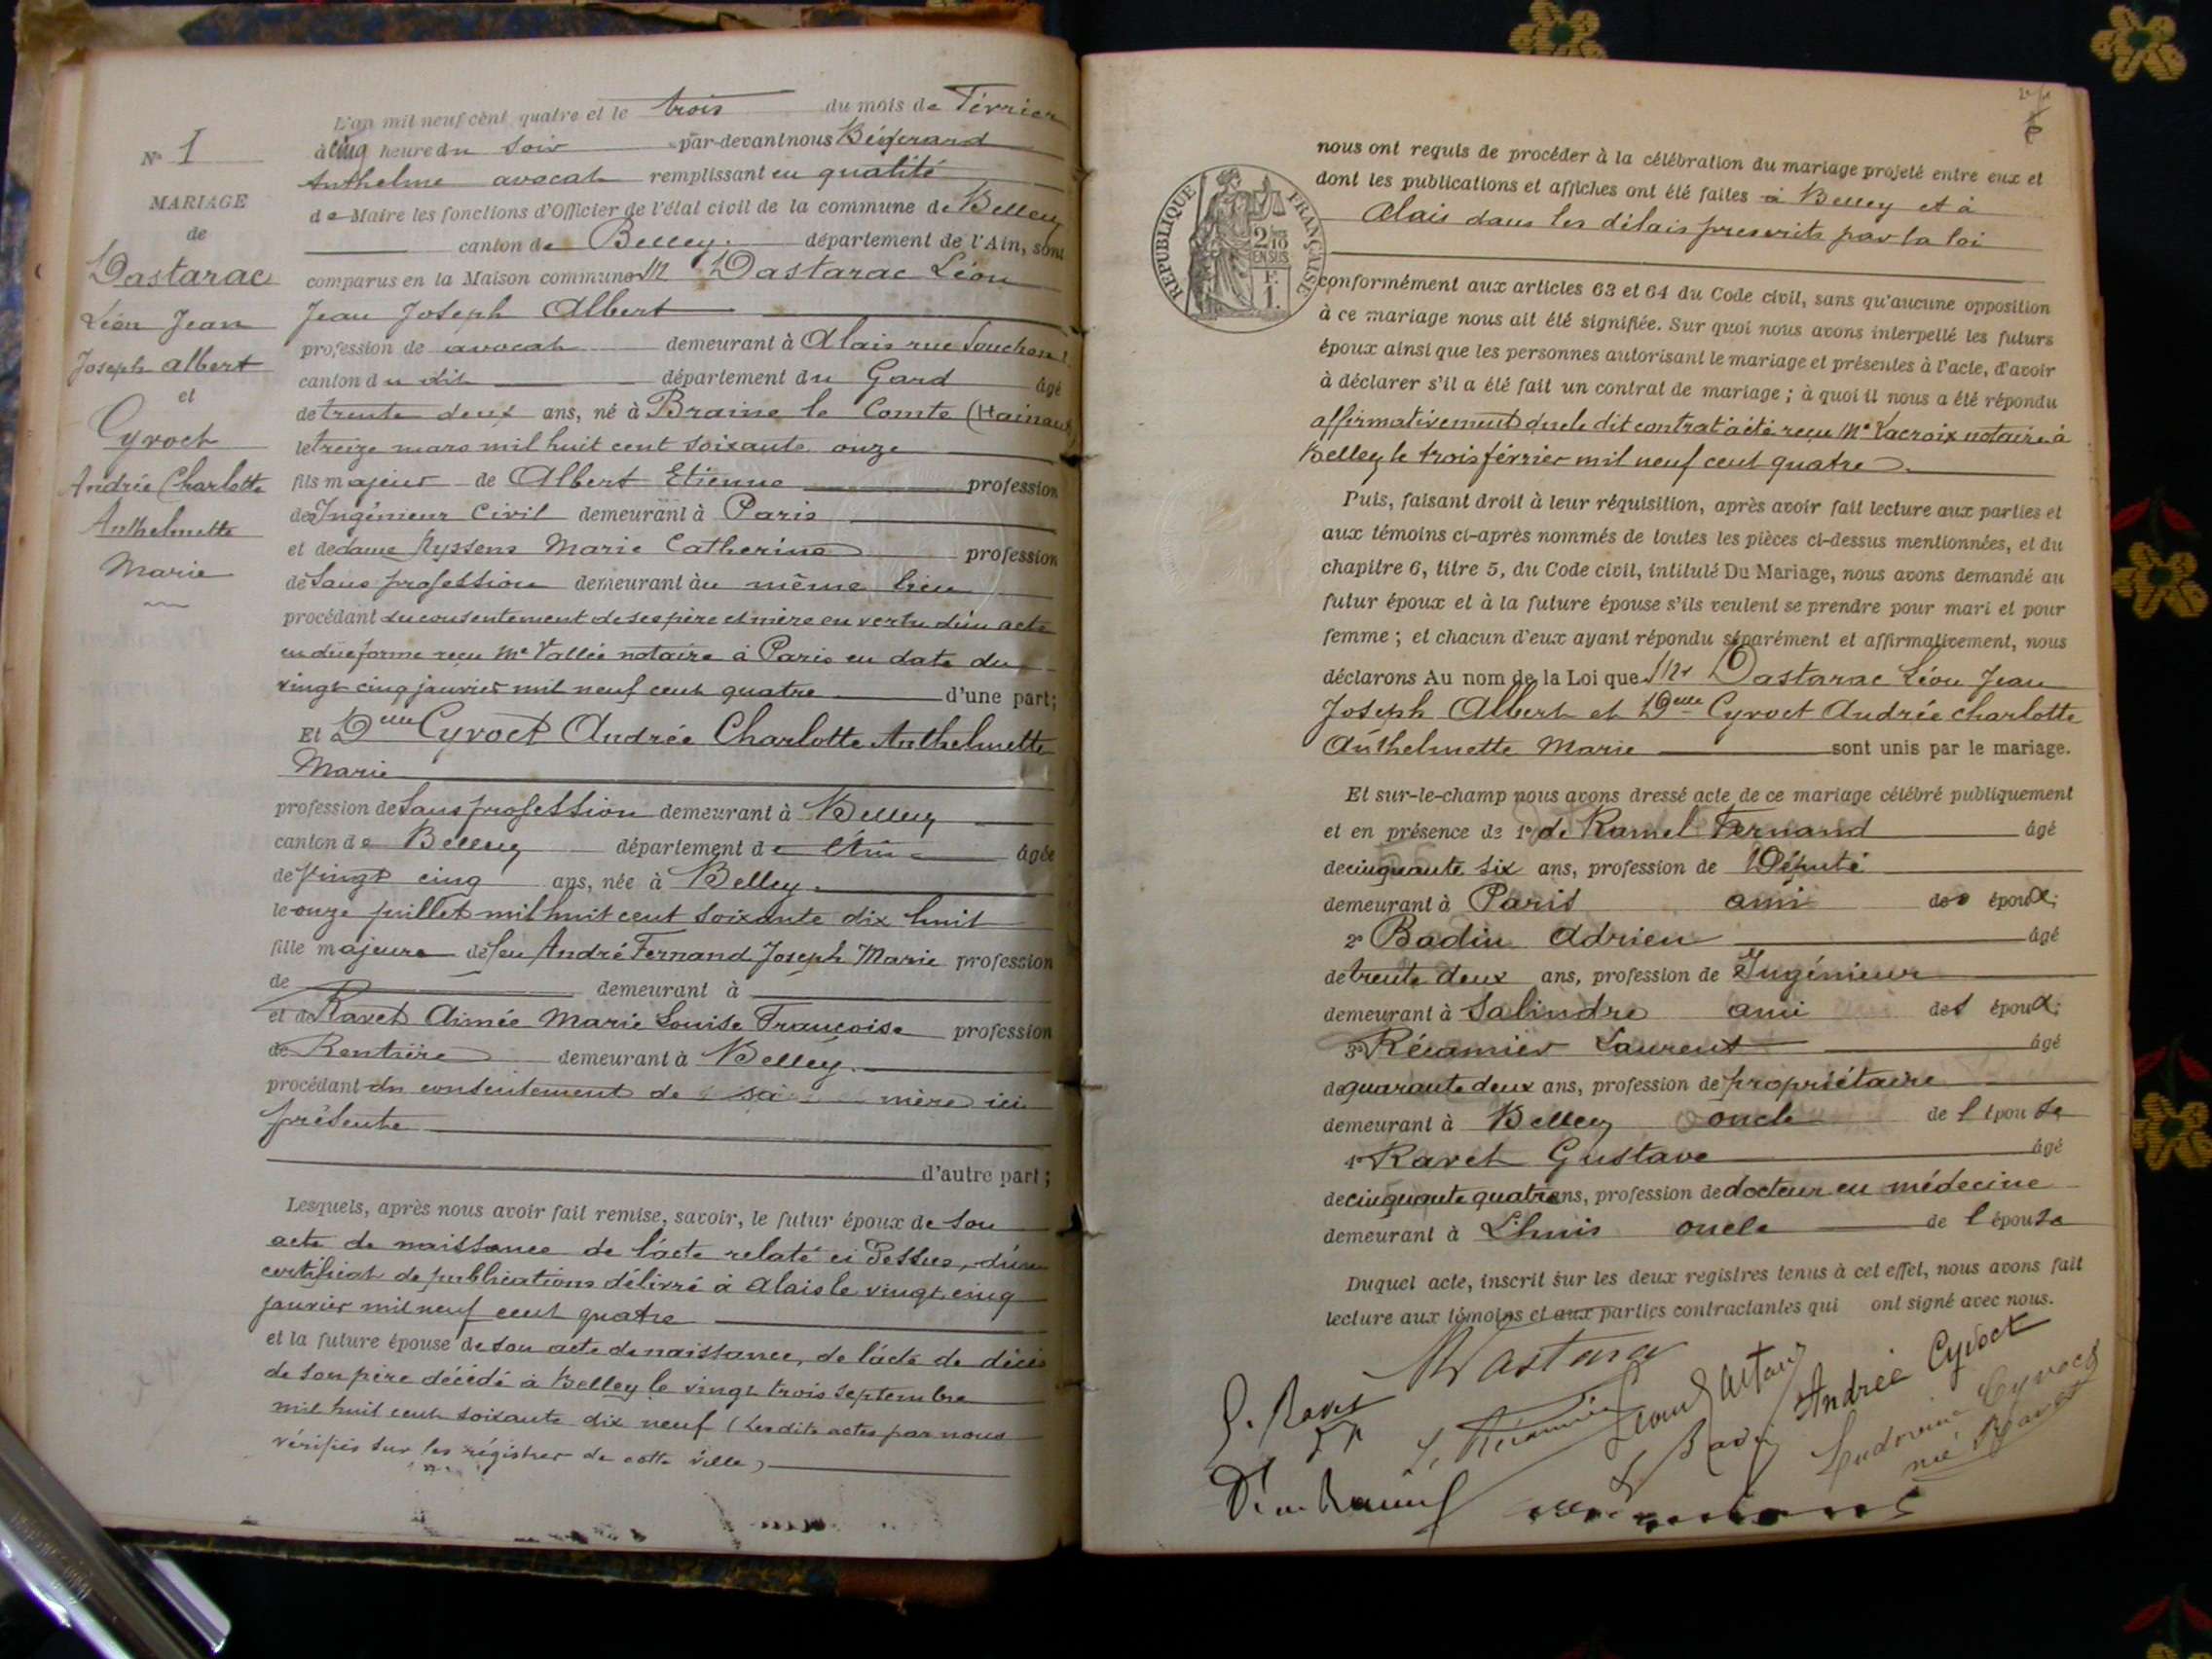 N° 1
MARIAGE
de
Dastarac
Léon Jean
Joseph Albert
et
Cyvoct
Andrée Charlotte
Anthelmette
Marie
L'an mil neuf cent quatre et le trois du mois de Février
à cinq heure du soir par-devant nous
Anthelme avocat remplissant en qualité
de Maire les fonctions d'Officier de l'état civil de la commune de Belley
canton de Belley. département de l'Ain, sont
comparus en la Maison commune Mr Dastarac Léon
Jean Joseph Albert
profession de avocat demeurant à Alais rue Souchon
canton du dit département du Gard âgé
de trente deux ans, né à Braine le Comte (Hainaut)
le treize mars mil huit cent soixante onze
fils majeur de Albert Etienne profession
de Ingénieur Civil demeurant à Paris
et de dame Nyssens Marie Catherine profession
de Sans profession demeurant au même lieu
procédant du consentement de ses père et mère en vertu d'un acte
en dûe forme reçu Me Vallée notaire à Paris en date du
vingt cinq janvier mil neuf cent quatre d'une part;
Et Delle Cyvoct Andrée Charlotte Anthelmette
Marie
profession de Sans profession demeurant à Belley
canton de Belley département de l'Ain âgée
de Vingt cinq ans, née à Belley
le onze juillet mil huit cent soixante dix huit
fille majeure de feu André Fernand Joseph Marie profession
de demeurant à
et de Ravet Aimée Marie Louise Françoise profession
de Rentière demeurant à Belley.
procédant du consentement de sa mère ici
présente
d'autre part;
Lesquels, après nous avoir fait remise, savoir, le futur époux de son
acte de naissance de l'acte relaté ci dessus, d'un
certificat de publications délivré à Alais le vingt cinq
janvier mil neuf cent quatre
et la future épouse de son acte de naissance, de l'acte de décès
de son père décédé à Belley le vingt trois septembre
mil huit cent soixante dix neuf (Les dits actes par nous
vérifiés sur les régistres de cette ville)
RÉPUBLIQUE FRANÇAISE
2/10
EN SUS
F.
1.
nous ont requis de procéder à la célébration du mariage projeté entre eux et
dont les publications et affiches ont été faites à Belley et à
Alais dans les délais prescrits par la loi
conformément aux articles 63 et 64 du Code civil, sans qu'aucune opposition
à ce mariage nous ait été signifiée. Sur quoi nous avons interpellé les futurs
époux ainsi que les personnes autorisant le mariage et présentes à l'acte, d'avoir
à déclarer s'il a été fait un contrat de mariage; à quoi il nous a été répondu
affirmativement que le dit contrat a été reçu Me Lacroix notaire à
Belley le trois février mil neuf cent quatre
Puis, faisant droit à leur réquisition, après avoir fait lecture aux parties et
aux témoins ci-après nommés de toutes les pièces ci-dessus mentionnées, et du
chapitre 6, titre 5, du Code civil, intitulé Du Mariage, nous avons demandé au
futur époux et à la future épouse s'ils veulent se prendre pour mari et pour
femme; et chacun d'eux ayant répondu séparément et affirmativement, nous
déclarons Au nom de la Loi que Mr Dastarac Léon Jean
Joseph Albert et Delle Cyvoct Andrée Charlotte
Anthelmette Marie sont unis par le mariage.
Et sur-le-champ nous avons dressé acte de ce mariage célébré publiquement
et en présence de 1° de Ramel Fernand âgé
de cinquante six ans, profession de Député
demeurant à Paris ami des époux;
2° Badin Adrien âgé
de trente deux ans, profession de Ingénieur
demeurant à Salindre ami des époux;
3° Récamier Laurent âgé
de quarante deux ans, profession de propriétaire
demeurant à Belley oncle de l'épouse
4° Ravet Gustave âgé
de cinquante quatre ans, profession de docteur en médecine
demeurant à Lhuis oncle de l'épouse
Duquel acte, inscrit sur les deux registres tenus à cet effet, nous avons fait
lecture aux témoins et aux parties contractantes qui ont signé avec nous.
Dastarac
G. Ravet
L. Récamier
Andrée Cyvoct
Cyvoct
née Ravet